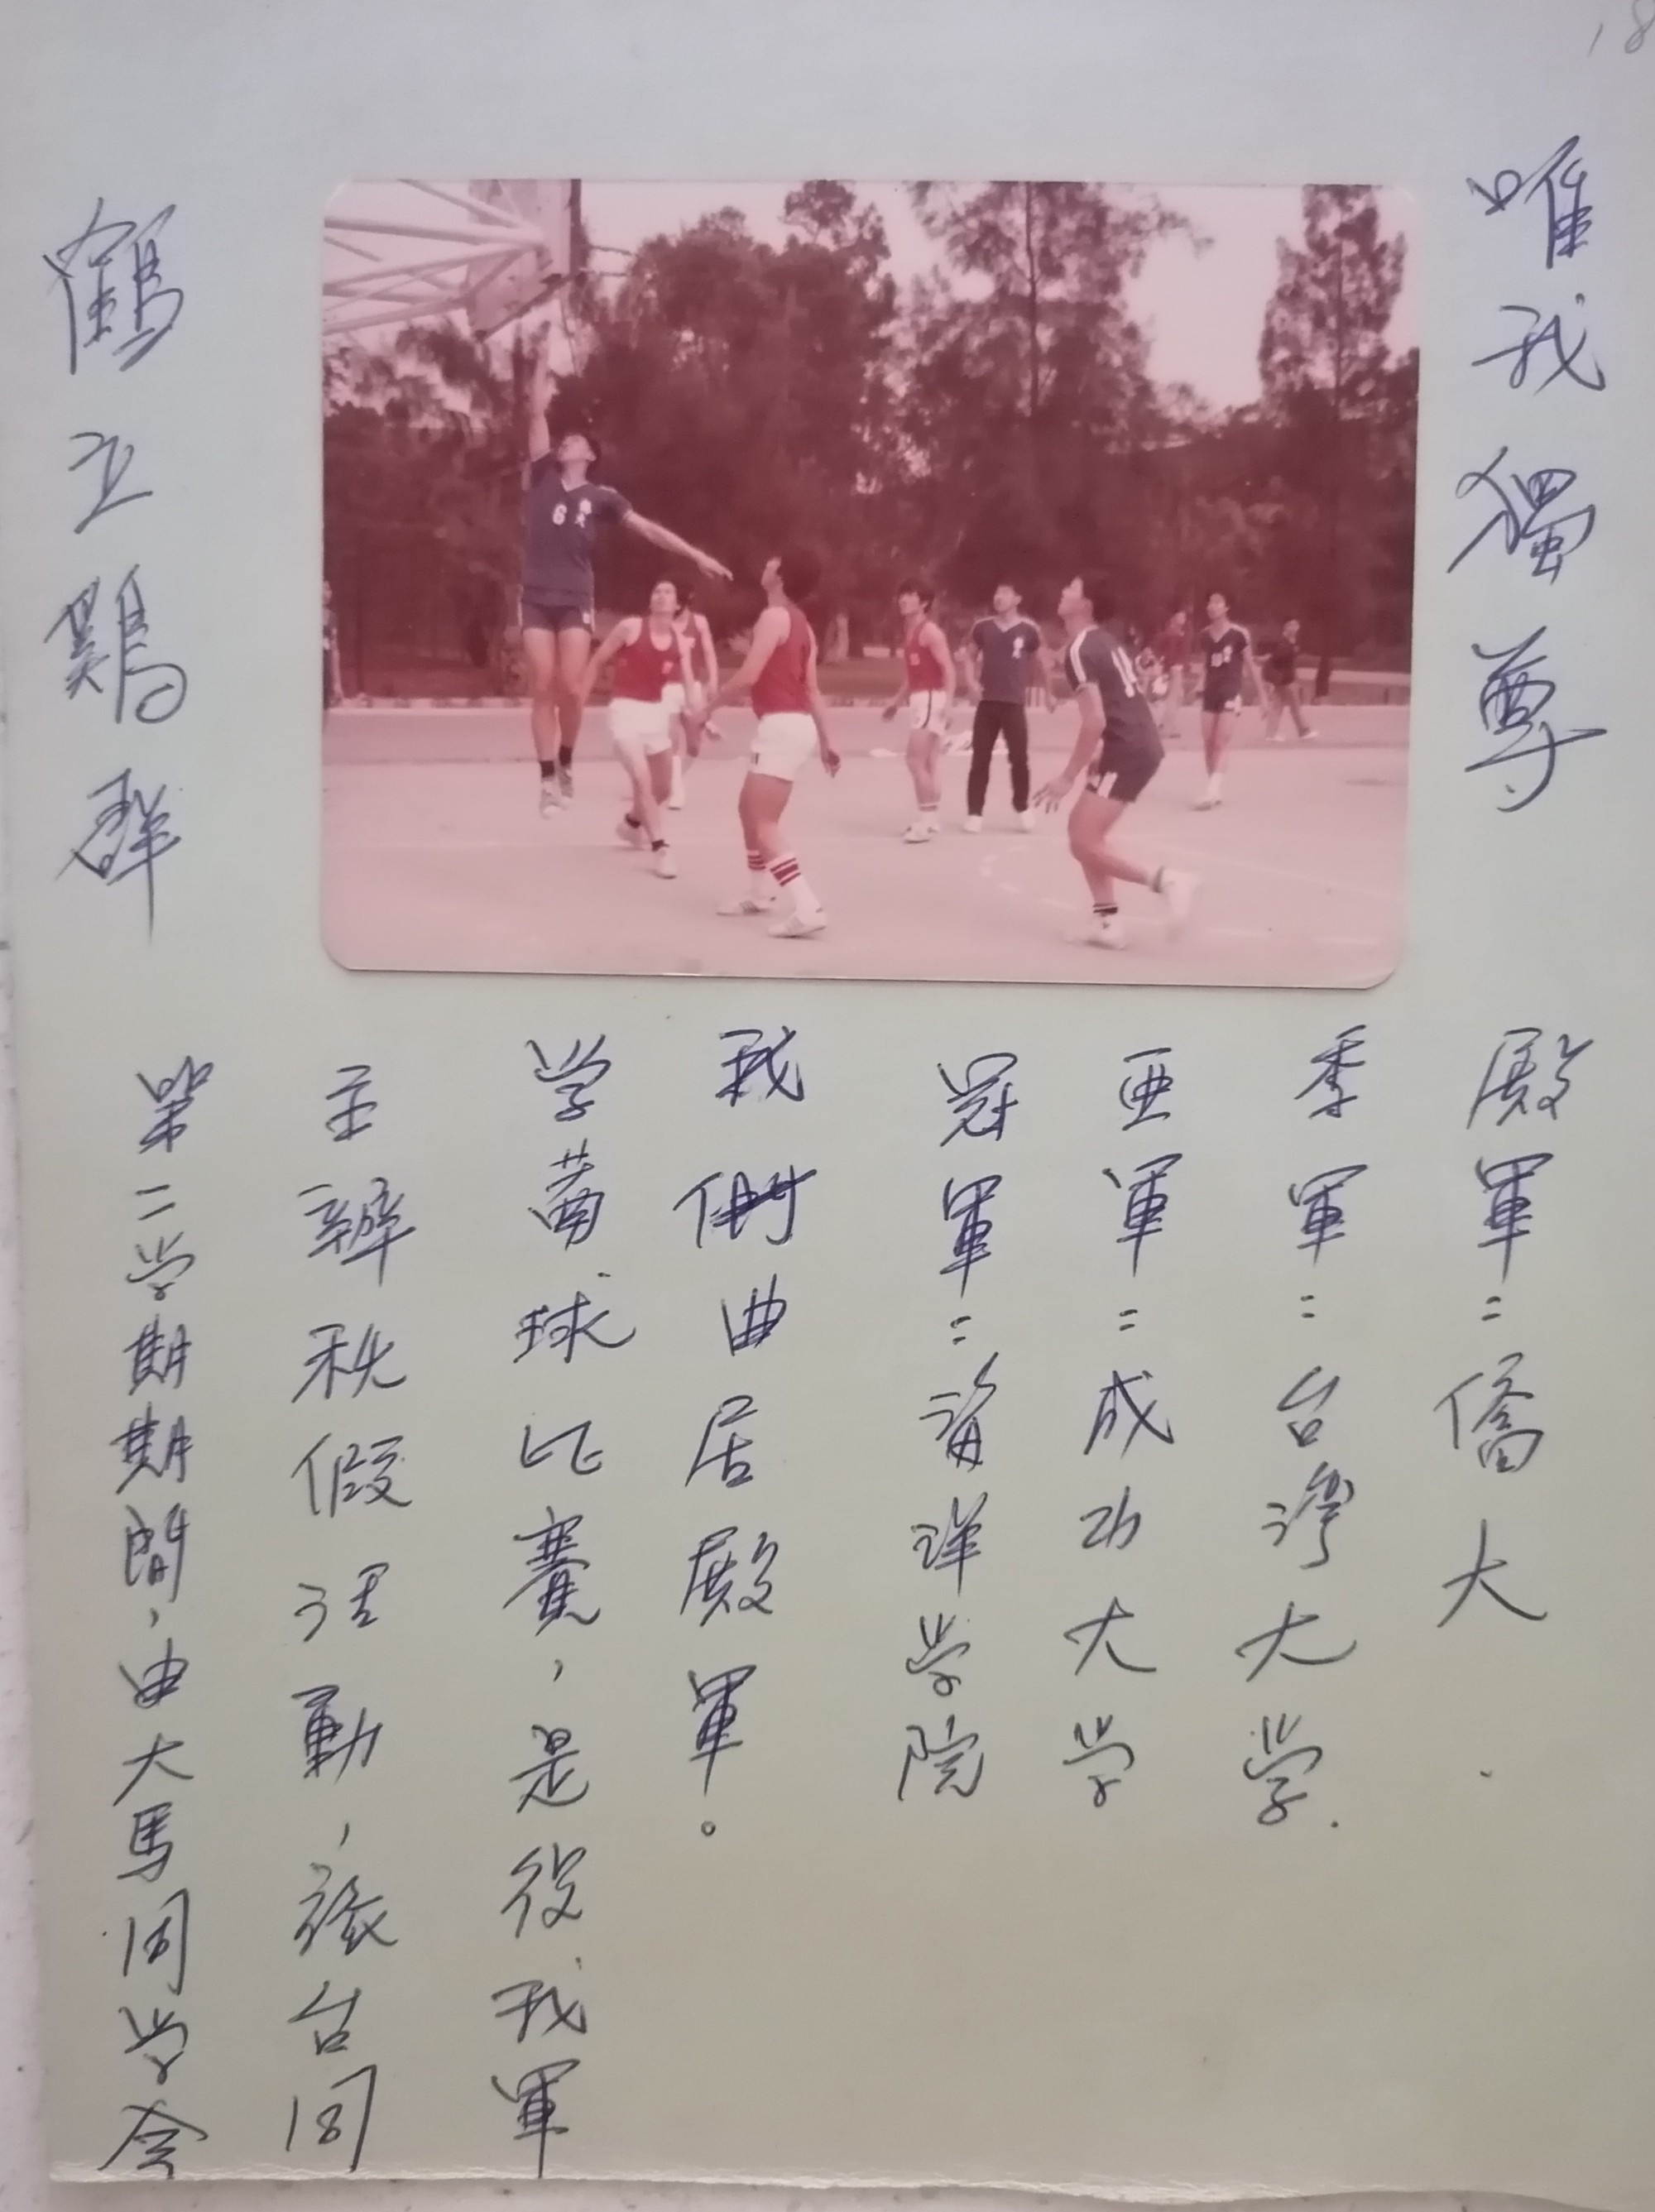 18
鶴立鷄群
唯我獨尊
6
第二学期期間，由大馬同学会
主辦秋假活動，旅台同
学藍球比賽，是役我軍
我們曲居殿軍。
冠軍=海洋学院
亜軍=成功大学
季軍=台灣大学.
殿軍=僑大.